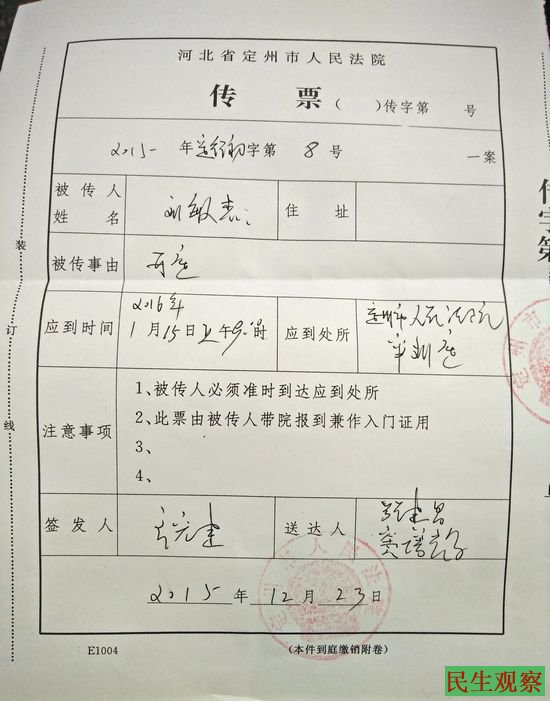 河北省定州市人民法院
传 票 ( )传字第 号
2015 年 字第 8 号 一案
被传人姓名 刘敏 住址
被传事由 开庭
应到时间 2016年1月15日上午9时 应到处所 定州市人民法院审判庭
注意事项
1、被传人必须准时到达应到处所
2、此票由被传人带院报到兼作入门证用
3、
4、
签发人 送达人
2015 年 12 月 23 日
E1004 (本件到庭缴销附卷)
装
订
线
民生观察